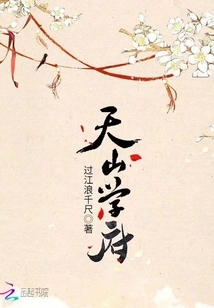 天山学府
过江浪千尺◎著
云起书院